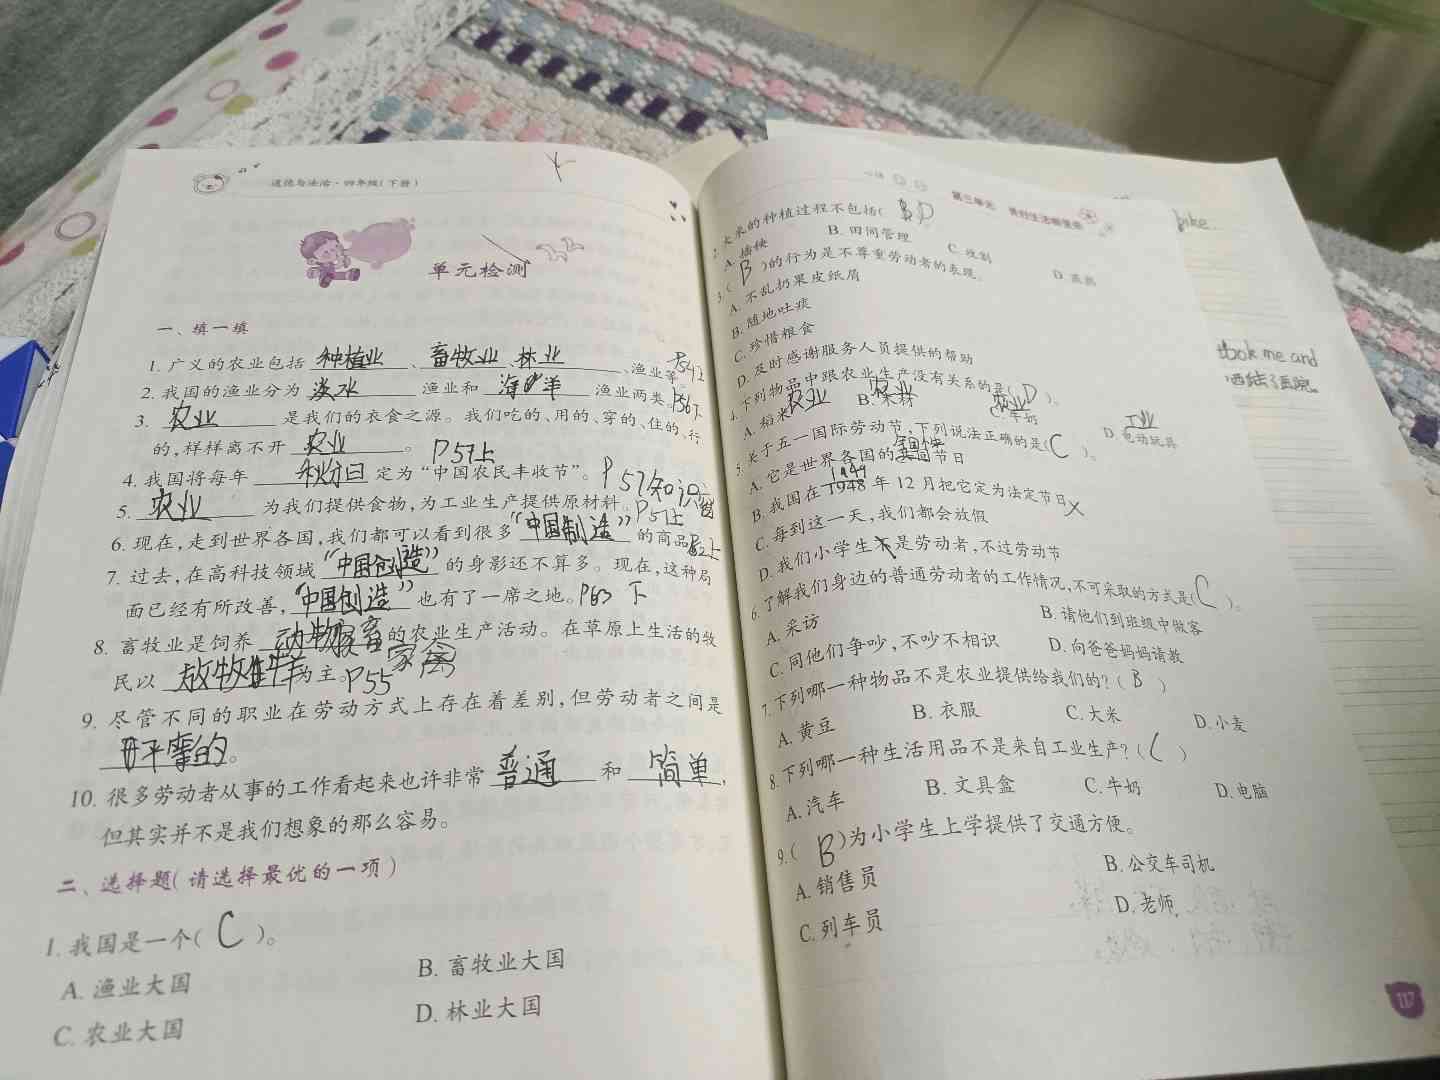 道德与法治·四年级(下册)
单元检测
一、填一填
1. 广义的农业包括 种植业、畜牧业、林业、渔业等。P54上
2. 我国的渔业分为 淡水 渔业和 海洋 渔业两类。P56下
3. 农业 是我们的衣食之源。我们吃的、用的、穿的、住的、行
的,样样离不开 农业 。P57上
4. 我国将每年 秋分日 定为“中国农民丰收节”。P57知识窗
5. 农业 为我们提供食物,为工业生产提供原材料。P57上
6. 现在,走到世界各国,我们都可以看到很多 “中国制造” 的商品。P62上
7. 过去,在高科技领域 “中国创造” 的身影还不算多。现在,这种局
面已经有所改善, “中国创造” 也有了一席之地。P63 下
8. 畜牧业是饲养 动物家畜 的农业生产活动。在草原上生活的牧
家禽
民以 放牧牛羊 为主。P55
9. 尽管不同的职业在劳动方式上存在着差别,但劳动者之间是
平等的 。
10. 很多劳动者从事的工作看起来也许非常 普通 和 简单 ,
但其实并不是我们想象的那么容易。
二、选择题(请选择最优的一项)
1. 我国是一个( C )。
A. 渔业大国 B. 畜牧业大国
C. 农业大国 D. 林业大国
第三单元
2. 大米的种植过程不包括( D
A. 插秧 B. 田间管理 C. 收割 D. 蒸煮
3. ( B )的行为是不尊重劳动者的表现。
A. 不乱扔果皮纸屑
B. 随地吐痰
C. 珍惜粮食
D. 及时感谢服务人员提供的帮助
4. 下列物品中跟农业生产没有关系的是( D )。
农业 农业 农业 工业
A. 稻米 B. 木材 C. 牛奶 D. 电动玩具
5. 关于五一国际劳动节,下列说法正确的是( C )。
A. 它是世界各国的共同节日
1949
B. 我国在1948年12月把它定为法定节日 X
C. 每到这一天,我们都会放假
D. 我们小学生不是劳动者,不过劳动节
6. 了解我们身边的普通劳动者的工作情况,不可采取的方式是( C )。
A. 采访 B. 请他们到班级中做客
C. 同他们争吵,不吵不相识 D. 向爸爸妈妈请教
7. 下列哪一种物品不是农业提供给我们的?( B )
A. 黄豆 B. 衣服 C. 大米 D. 小麦
8. 下列哪一种生活用品不是来自工业生产?( C )
A. 汽车 B. 文具盒 C. 牛奶 D. 电脑
9. ( B )为小学生上学提供了交通方便。
A. 销售员 B. 公交车司机
C. 列车员 D. 老师
117
took me and